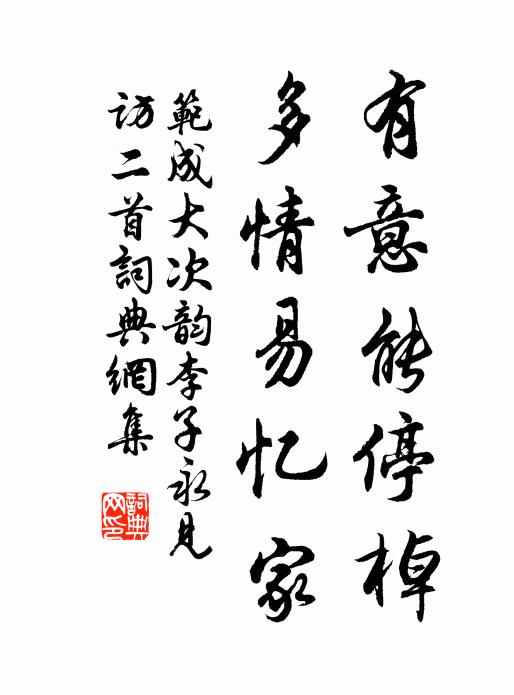 有意能停棹
多情易忆家
範成大次韵李子永見
訪二首詞典網集
詞典
网印